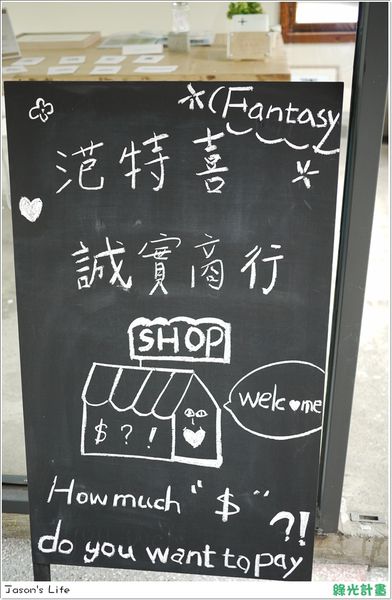 (Fantasy
范特喜
誠實商行
SHOP
welcome
$?!
How much "$"
?!
do you want to pay
Jason's Life
綠光計畫